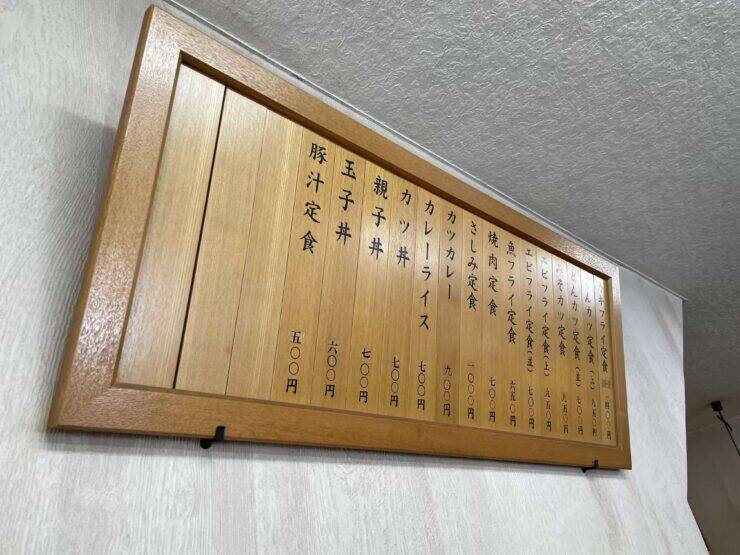 キフライ定食 一四〇〇円
とんカツ定食(上) 九五〇円
とんカツ定食(並) 七〇〇円
みそカツ定食 九五〇円
エビフライ定食(上) 九五〇円
エビフライ定食(並) 七〇〇円
魚フライ定食 六五〇円
焼肉定食 七〇〇円
さしみ定食 一〇〇〇円
カツカレー 九〇〇円
カレーライス 七〇〇円
カツ丼 七〇〇円
親子丼 七〇〇円
玉子丼 六〇〇円
豚汁定食 五〇〇円